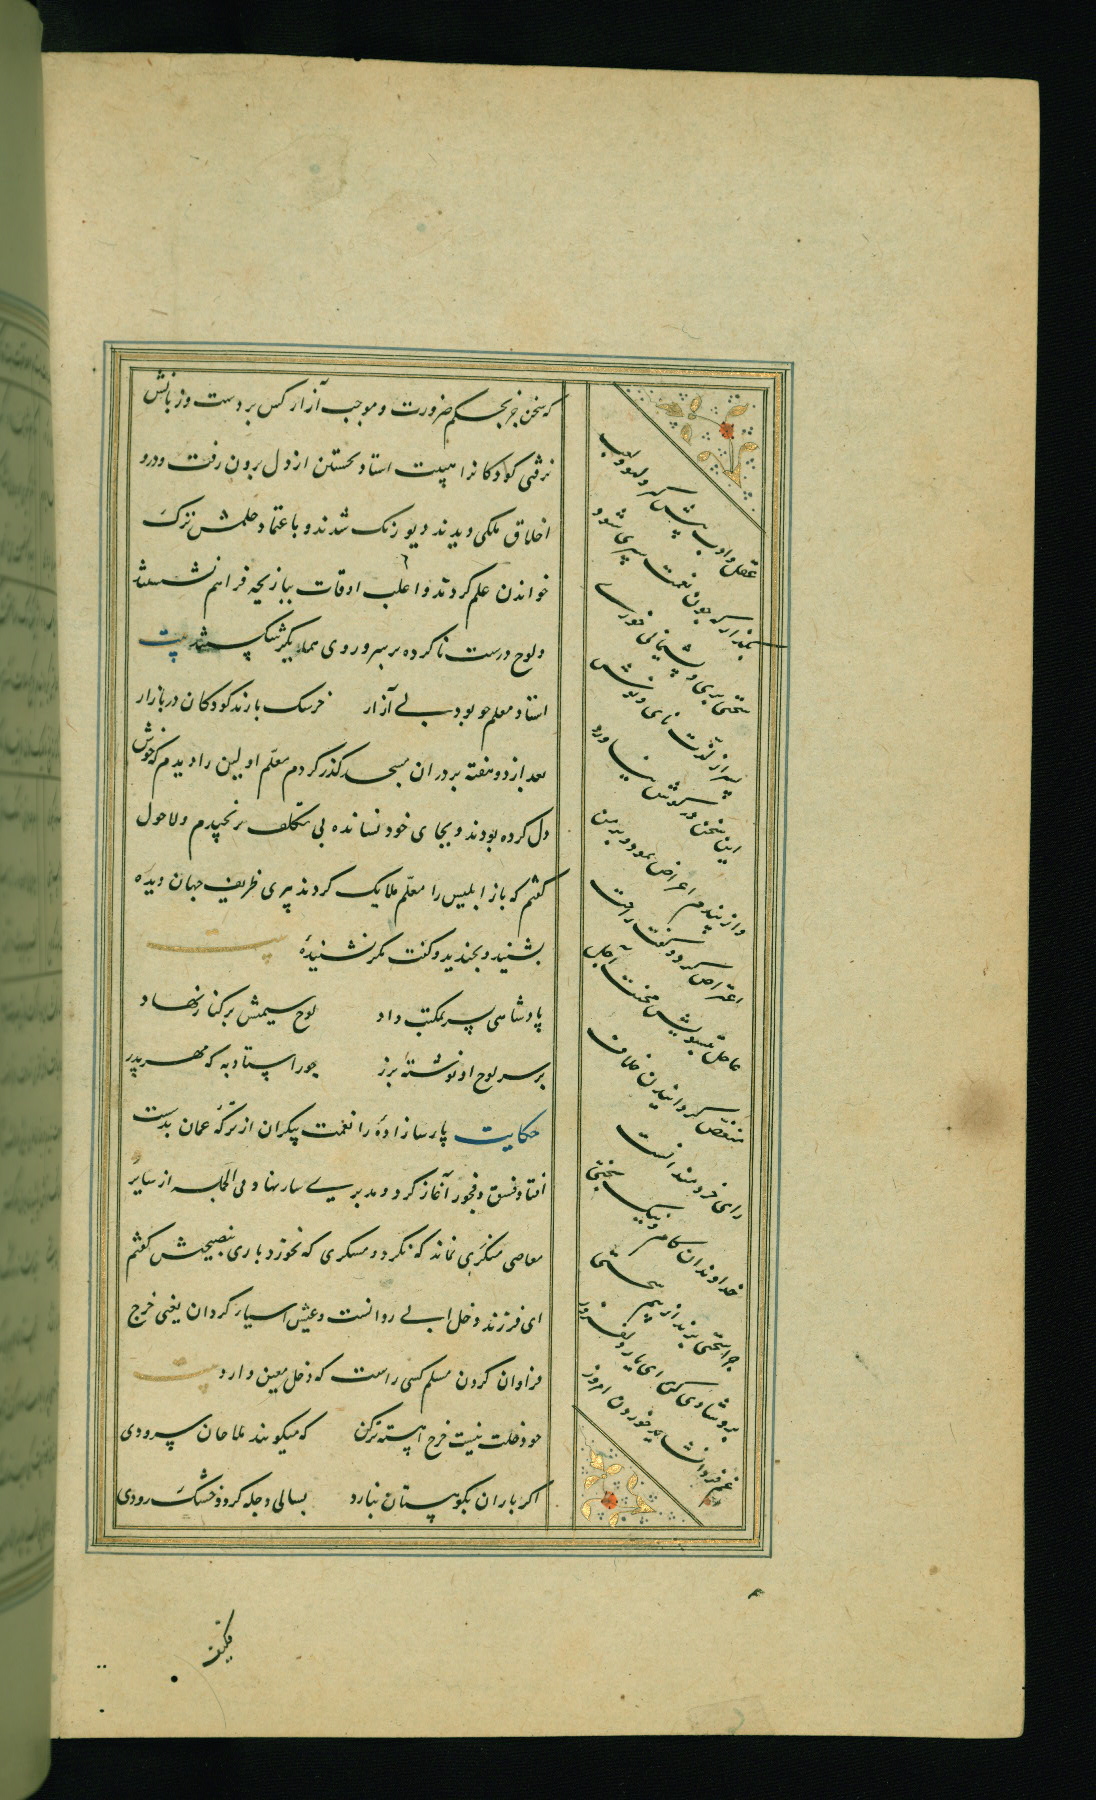 که سخن جز بحکم ضرورت و موجب آزار کس بر دست و زبانش
نرفتی کودکانرا هیبت استاد نخستین از دل برون رفت و درو
اخلاق ملکی دیدند دیو زنک شدند و باعتماد حلمش ترک
خواندن علم کردند و اغلب اوقات ببازیچه فراهم نشستند
و لوح درست ناکرده بر سر و روی همدیگر شکستند بیت
استاد معلم چو بود بی آزار خرسک بازند کودکان در بازار
بعد از دو هفته بر در ان مسجد گذر کردم معلم اولین را دیدم که خوش
دل کرده بودند و بجای خود نشانده بی تکلف برنجیدم و لاحول
گفتم که باز ابلیس را معلم ملایک کردند پیری ظریف جهان دیده
بشنید و بخندید و گفت مگر نشنیدهٔ بیت
پادشاهی پسر بمکتب داد لوح سیمش بر کنار نهاد
بر سر لوح او نوشته بزر جور استاد به که مهر پدر
حکایت پارسازادهٔ را نعمت بیکران از ترکهٔ عمان بدست
افتاد فسق و فجور آغاز کرد و مبذری پیشه نهاد و فی الجمله از سایر
معاصی منکری نماند که نکرد و مسکری که نخورد باری بنصیحتش گفتم
ای فرزند دخل آب روانست و عیش آسیا گردان یعنی خرج
فراوان کردن مسلم کسی راست که دخل معین دارد بیت
چو دخلت نیست خرج آهسته تر کن که میگویند ملاحان سرودی
اگر باران بکوهستان نبارد بسالی دجله گردد خشک رودی
عقل و ادب پیش گیر و لهو و لعب
بگذار که چون نعمت سپری شود
سختی بری و پشیمانی خوری
پسر از لذت نای و نوش
این سخن در گوش نیاورد
و از پندم اعراض نمود و بر من
اعتراض کرد و گفت راحت
عاجل بتشویش محنت آجل
منغص گردانیدن خلاف
رای خردمندانست
خداوندان کام و نیک بختی
چرا سختی برند از بیم سختی
برو شادی کن ای یار دلفروز
غم فردا نشاید خوردن امروز
فکیف